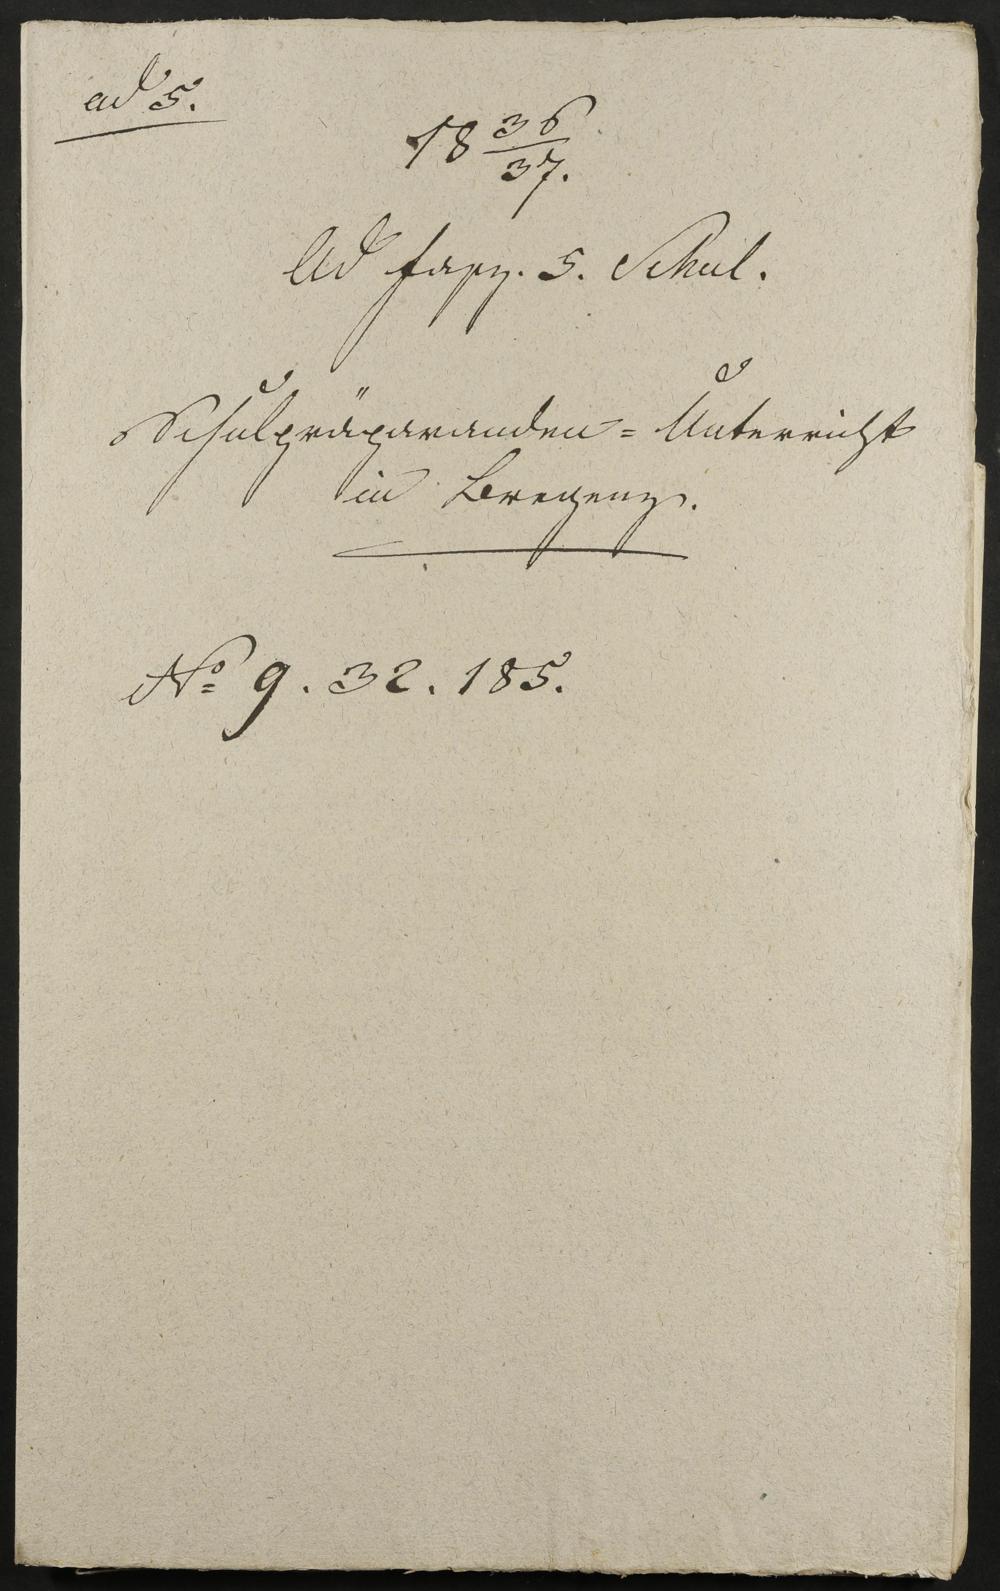 ad 5.
18 36/37.
Ad fasz. 5. Schul.
Schulpräparanden=Unterricht
in Bregenz.
No 9. 32. 185.